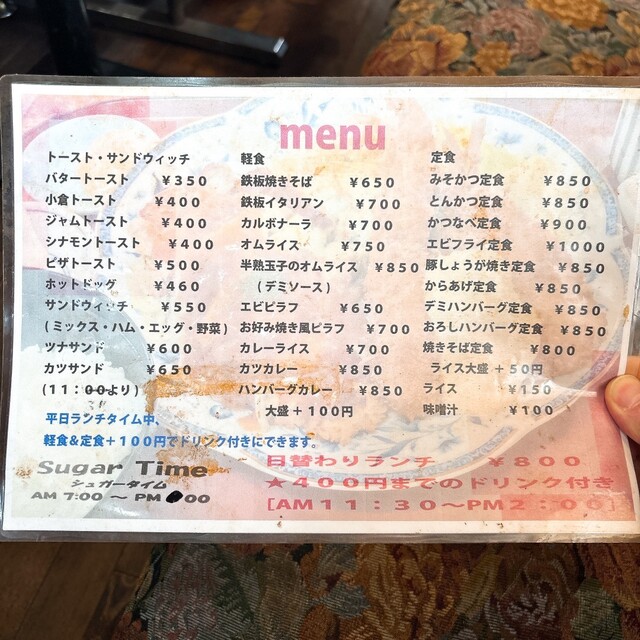 menu
トースト・サンドウィッチ
バタートースト ￥３５０
小倉トースト ￥４００
ジャムトースト ￥４００
シナモントースト ￥４００
ピザトースト ￥５００
ホットドッグ ￥４６０
サンドウィッチ ￥５５０
(ミックス・ハム・エッグ・野菜)
ツナサンド ￥６００
カツサンド ￥６５０
(１１：００より)
軽食
鉄板焼きそば ￥６５０
鉄板イタリアン ￥７００
カルボナーラ ￥７００
オムライス ￥７５０
半熟玉子のオムライス ￥８５０
(デミソース)
エビピラフ ￥６５０
お好み焼き風ピラフ ￥７００
カレーライス ￥７００
カツカレー ￥８５０
ハンバーグカレー ￥８５０
大盛＋１００円
定食
みそかつ定食 ￥８５０
とんかつ定食 ￥８５０
かつなべ定食 ￥９００
エビフライ定食 ￥１０００
豚しょうが焼き定食 ￥８５０
からあげ定食 ￥８５０
デミハンバーグ定食 ￥８５０
おろしハンバーグ定食 ￥８５０
焼きそば定食 ￥８００
ライス大盛＋５０円
ライス ￥１５０
味噌汁 ￥１００
平日ランチタイム中、
軽食&定食＋１００円でドリンク付きにできます。
Sugar Time
シュガータイム
AM 7:00 ～ PM 00
日替わりランチ ￥８００
★４００円までのドリンク付き
[AM１１：３０～PM２：００]